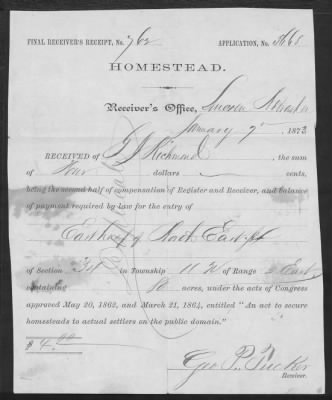 FINAL RECEIVER'S RECEIPT, No. 762 APPLICATION, No.
HOMESTEAD.
Receiver's Office, Lincoln Nebraska
January 7 1873
RECEIVED of Richmond, the sum
of Four dollars cents,
being the second half of compensation of Register and Receiver, and balance
of payment required by law for the entry of
East half of North East qr
of Section in Township 11 N of Range 2 East
containing 80 acres, under the acts of Congress
approved May 20, 1862, and March 21, 1864, entitled "An act to secure
homesteads to actual settlers on the public domain."
$ 4.00
Geo P. Tucker
Receiver.